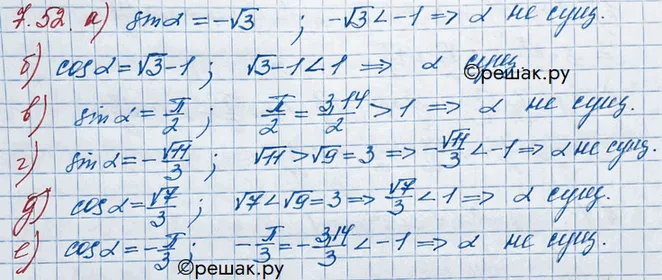 7.52. а) sin α = -√3 ; -√3 < -1 ⇒ α не сущ.
б) cos α = √3 - 1 ; √3 - 1 < 1 ⇒ α сущ.
©решак.ру
в) sin α = π/2 ; π/2 = 3,14/2 > 1 ⇒ α не сущ.
г) sin α = -√11/3 ; √11 > √9 = 3 ⇒ -√11/3 < -1 ⇒ α не сущ.
д) cos α = √7/3 ; √7 < √9 = 3 ⇒ √7/3 < 1 ⇒ α сущ.
е) cos α = -π/3 ; -π/3 = -3,14/3 < -1 ⇒ α не сущ.
©решак.ру